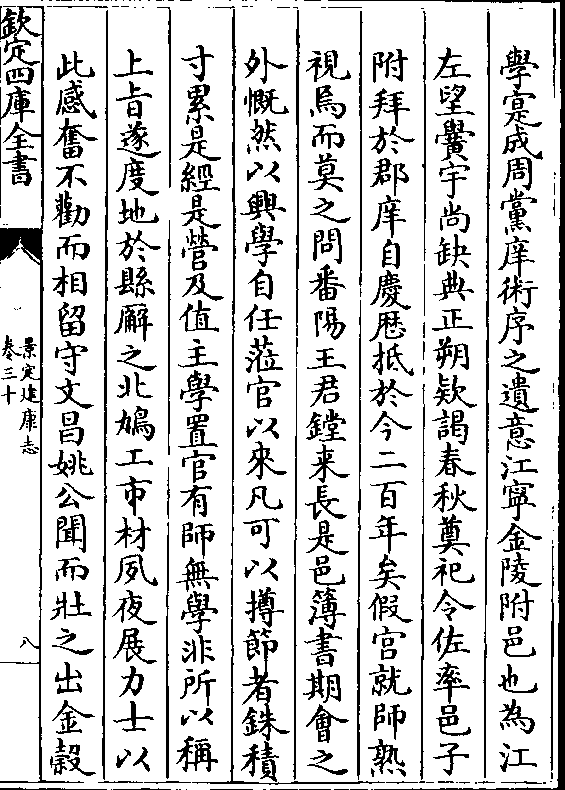 學寔成周黨庠術序之遺意江寧金陵附邑也為江
左望黌宇尚缺典正朔欵謁春秋奠祀令佐率邑子
附拜於郡庠自慶歴抵於今二百年矣假宫就師熟
視焉而莫之問番陽王君鏜来長是邑簿書期會之
外慨然以興學自任蒞官以來凡可以撙節者銖積
寸累是經是營及值主學置官有師無學非所以稱
上㫖遂度地於縣廨之北鳩工市材夙夜展力士以
此感奮不勸而相留守文昌姚公聞而壯之出金榖
欽定四庫全書
景定建康志
卷三十
八